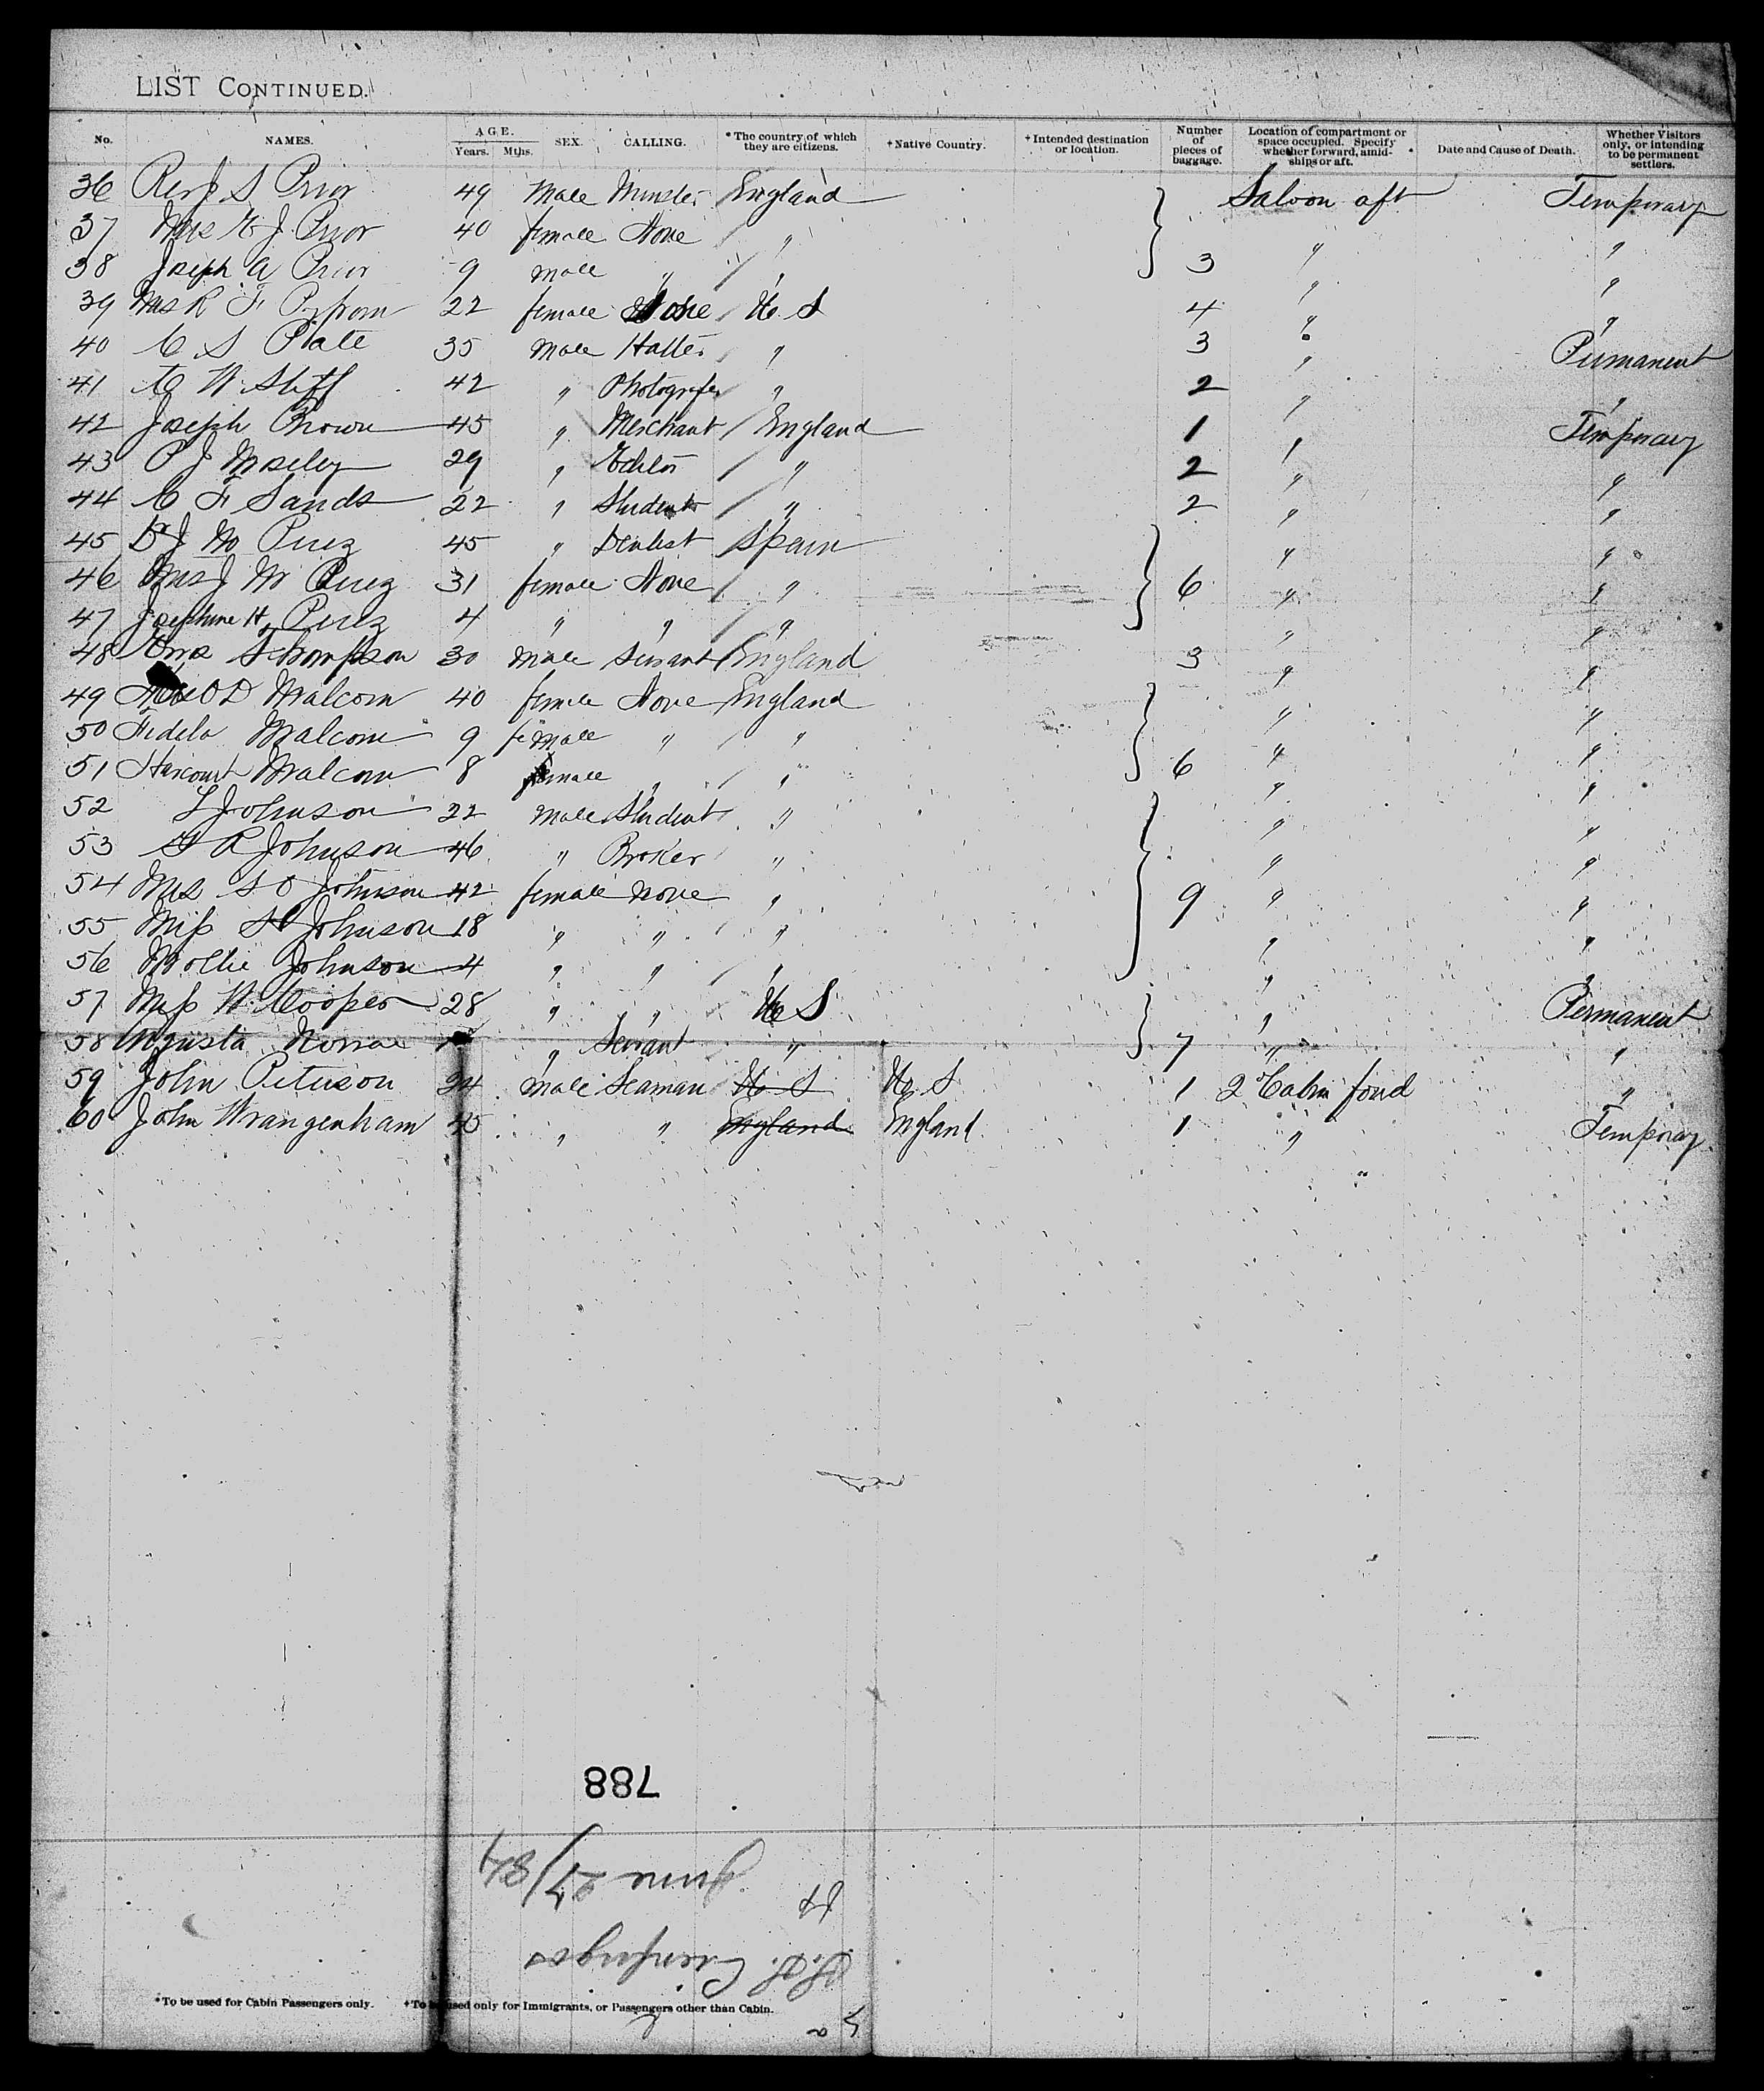 LIST CONTINUED.
No. NAMES. AGE. Years. Mths. SEX. CALLING. *The country of which they are citizens. +Native Country. +Intended destination or location. Number of pieces of baggage. Location of compartment or space occupied. Specify whether forward, amidships or aft. Date and Cause of Death. Whether Visitors only, or intending to be permanent settlers.
36 Rev J S Prior 49 Male Minster England Saloon aft Temporary
37 Mrs E J Prior 40 female None " " "
38 Joseph A Prior 9 male " " 3 " "
39 Mrs R F 22 female None U S 4 " "
40 C S Plate 35 Male Hatter " 3 " Permanent
41 C W Stiff 42 " Photografer " 2 " "
42 Joseph Brown 45 " Merchant England 1 " Temporary
43 P J Moseley 29 " Editor " 2 " "
44 C F Sands 22 " Student " 2 " "
45 Dr J M Perez 45 " Dentist Spain " "
46 Mrs J M Perez 31 female None " 6 " "
47 Josephine H Perez 4 " " " " "
48 Thompson 30 Male Servant England 3 " "
49 O D Malcom 40 female None England " "
50 Fidela Malcom 9 female " " " "
51 Harcourt Malcom 8 male " " 6 " "
52 L Johnson 22 Male Student " " "
53 F R Johnson 46 " Broker " " "
54 Mrs S O Johnson 42 female none " 9 " "
55 Miss Johnson 18 " " " " "
56 Mollie Johnson 4 " " " " "
57 Miss W. Cooper 28 " " U S " Permanent
58 Augusta " Servant " 7 " "
59 John Peterson 24 male Seaman U S U S 1 2d Cabin "
60 John Wrangenham 45 " " England England 1 " Temporay
788
June 27/84
S.S. Cienfuegos
*To be used for Cabin Passengers only. +To be used only for Immigrants, or Passengers other than Cabin.